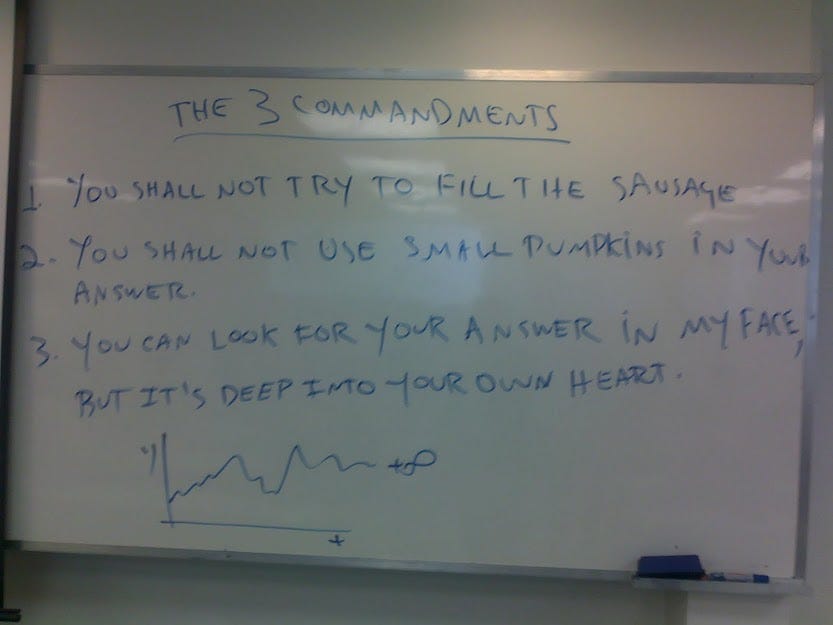 THE 3 COMMANDMENTS
1. YOU SHALL NOT TRY TO FILL THE SAUSAGE
2. YOU SHALL NOT USE SMALL PUMPKINS IN YOUR
ANSWER.
3. YOU CAN LOOK FOR YOUR ANSWER IN MY FACE,
BUT IT'S DEEP INTO YOUR OWN HEART.
+∞